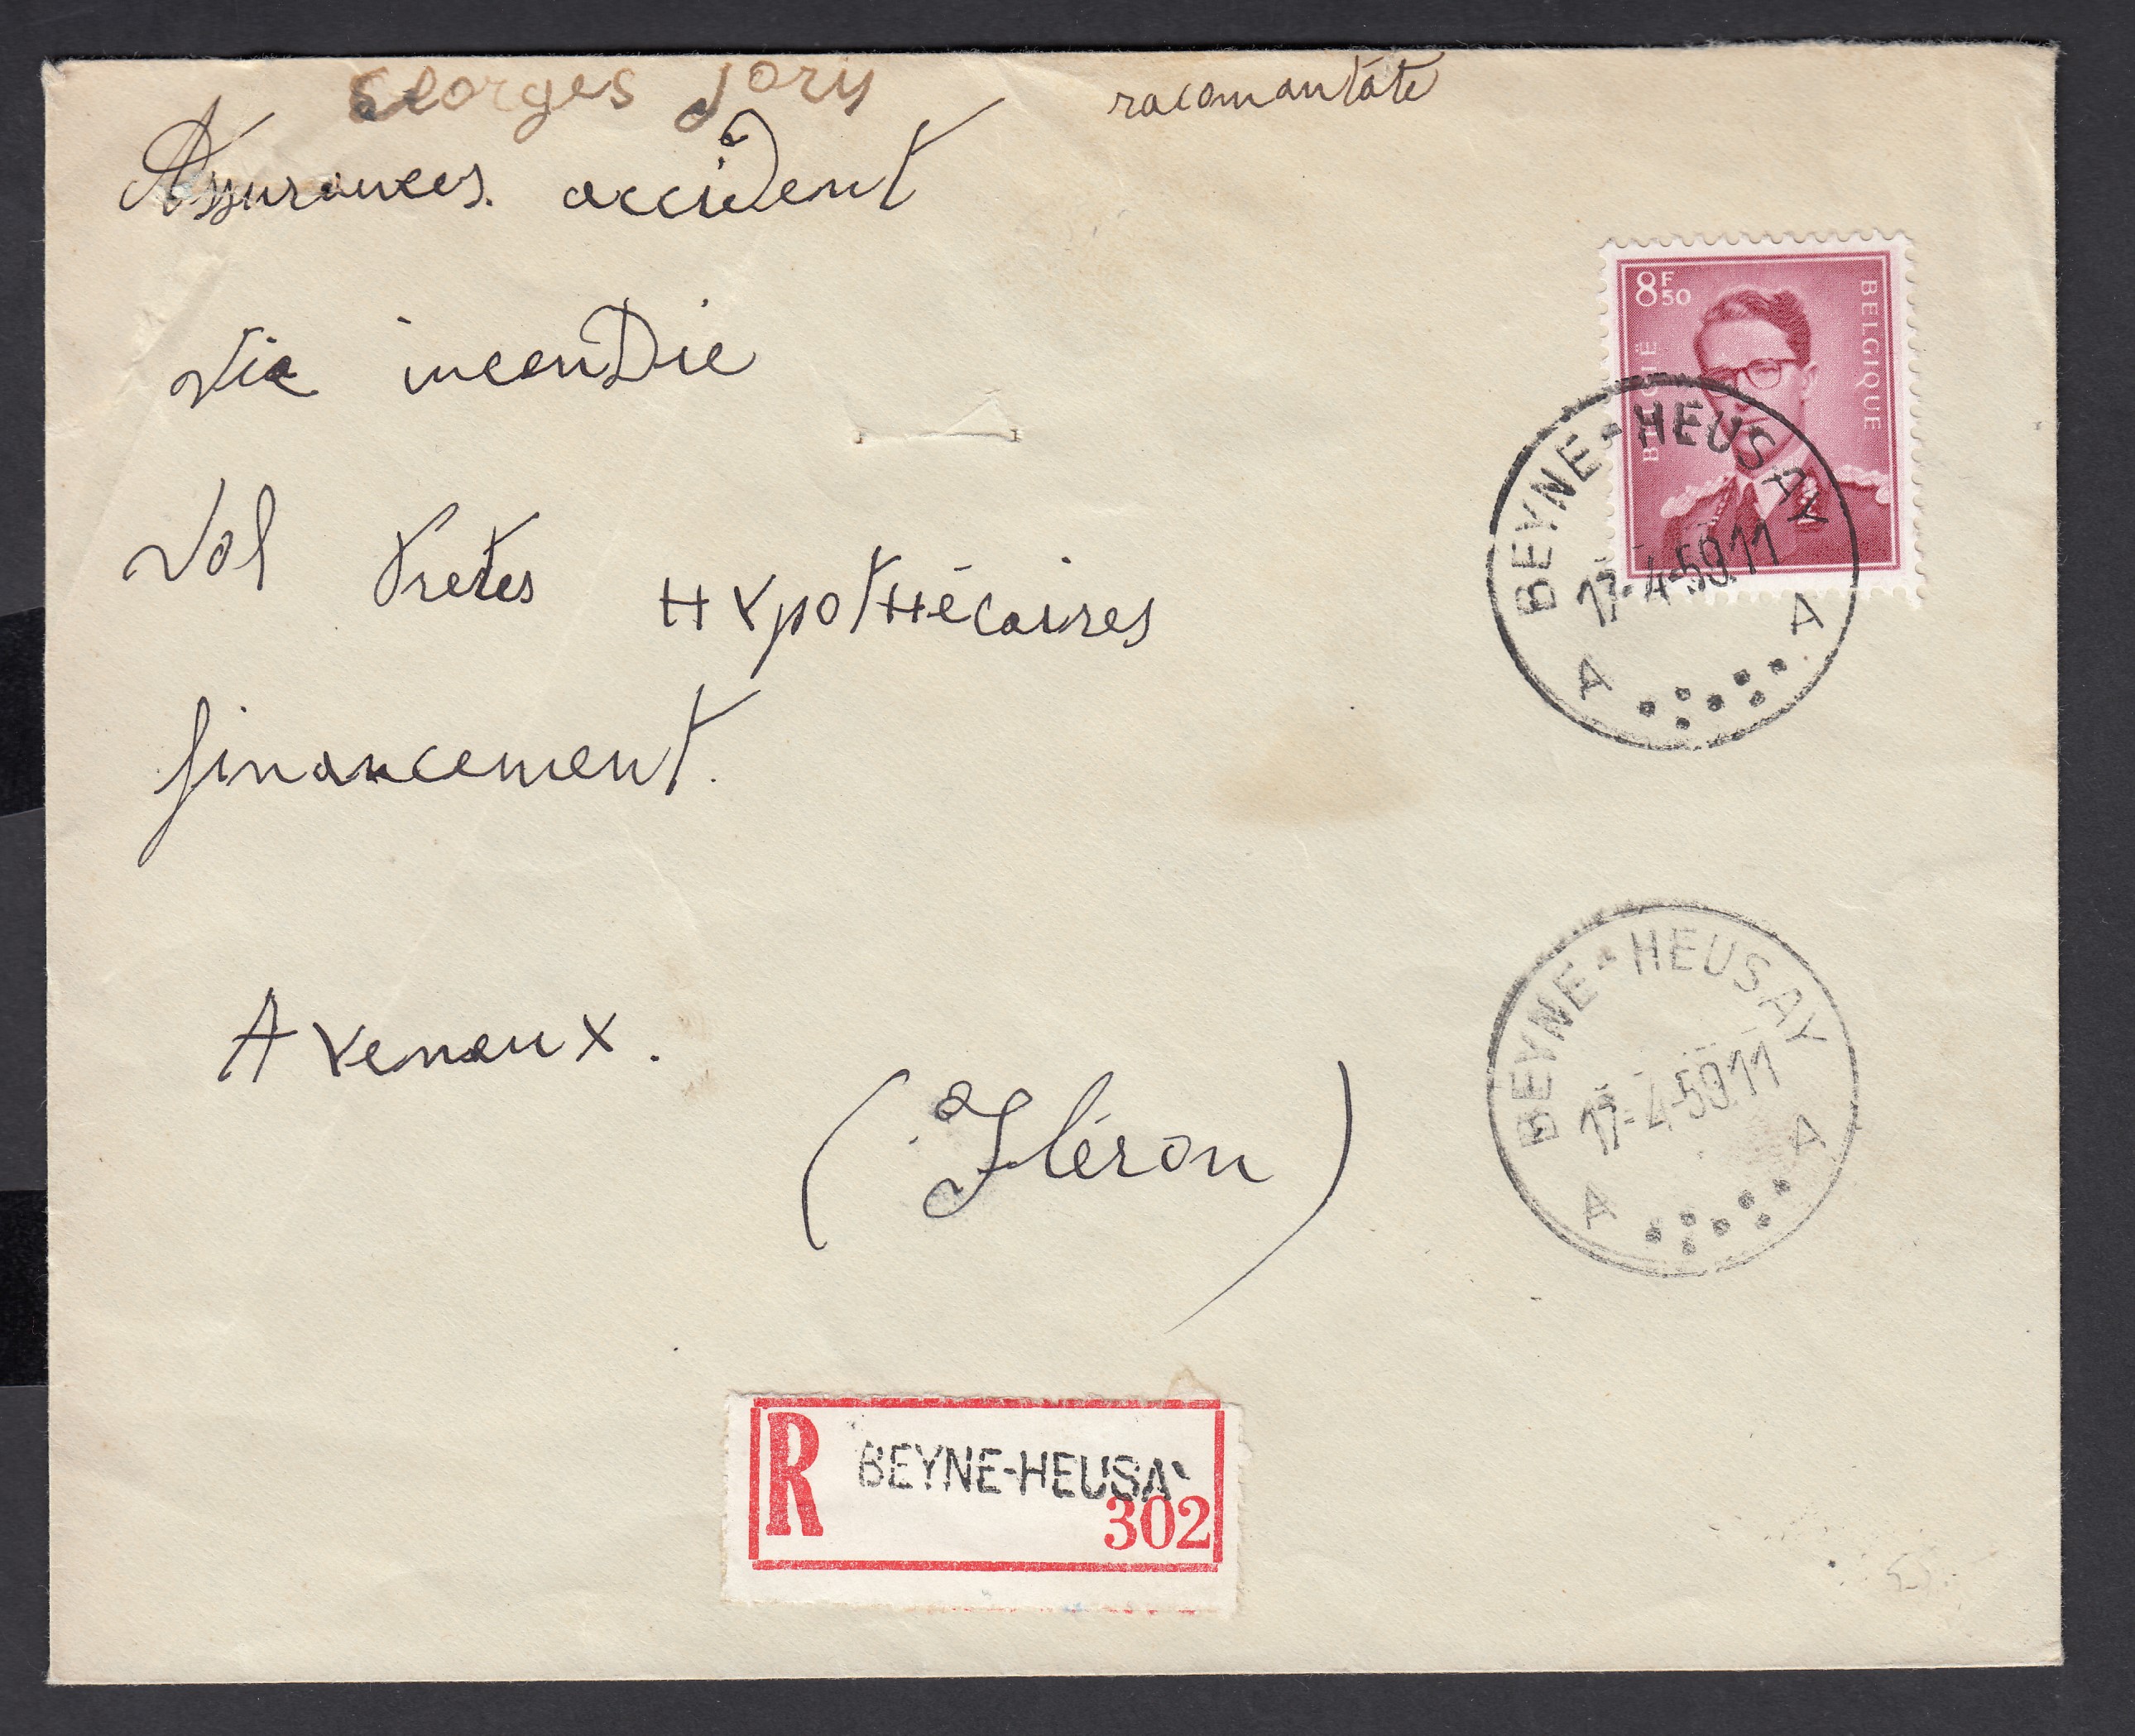 Georges Jory
racomantate
Assurances. accident
vie incenDie
Vol Pretes HYpotHécaires
financement.
AVenaux.
(Fléron)
8F50
BELGIË
BELGIQUE
BEYNE-HEUSAY
17-4-59.11
A A
BEYNE-HEUSAY
17-4-59.11
A A
R BEYNE-HEUSAY
302